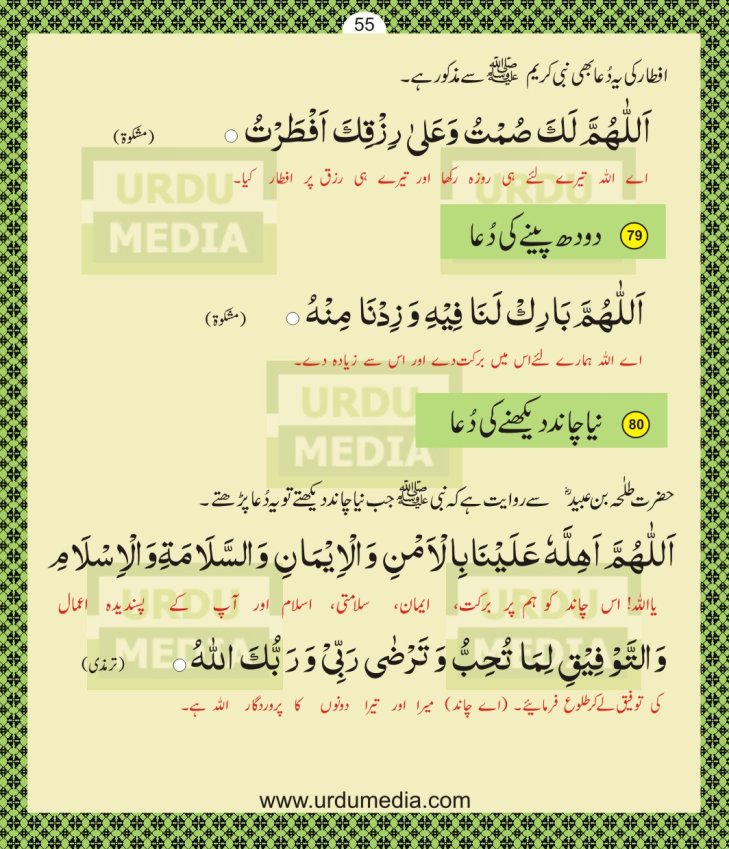 55
افطار کی یہ دُعا بھی نبی کریم ﷺ سے مذکور ہے۔
اَللّٰهُمَّ لَكَ صُمْتُ وَعَلیٰ رِزْقِكَ اَفْطَرْتُ ○ (مشکوٰۃ)
اے اللہ تیرے لئے ہی روزہ رکھا اور تیرے ہی رزق پر افطار کیا۔
79 دودھ پینے کی دُعا
اَللّٰهُمَّ بَارِكْ لَنَا فِيْهِ وَزِدْنَا مِنْهُ ○ (مشکوٰۃ)
اے اللہ ہمارے لئے اس میں برکت دے اور اس سے زیادہ دے۔
80 نیا چاند دیکھنے کی دُعا
حضرت طلحہ بن عبیدؓ سے روایت ہے کہ نبی ﷺ جب نیا چاند دیکھتے تو یہ دُعا پڑھتے۔
اَللّٰهُمَّ اَهِلَّهٗ عَلَيْنَا بِالْاَمْنِ وَالْاِيْمَانِ وَالسَّلَامَةِ وَالْاِسْلَامِ
یااللہ! اس چاند کو ہم پر برکت، ایمان، سلامتی، اسلام اور آپ کے پسندیدہ اعمال
وَالتَّوْفِيْقِ لِمَا تُحِبُّ وَتَرْضٰى رَبِّيْ وَرَبُّكَ اللّٰهُ ○ (ترمذی)
کی توفیق لے کر طلوع فرمائیے۔ (اے چاند) میرا اور تیرا دونوں کا پروردگار اللہ ہے۔
www.urdumedia.com
URDU
MEDIA
URDU
MEDIA
URDU
MEDIA
URDU
MEDIA
URDU
MEDIA